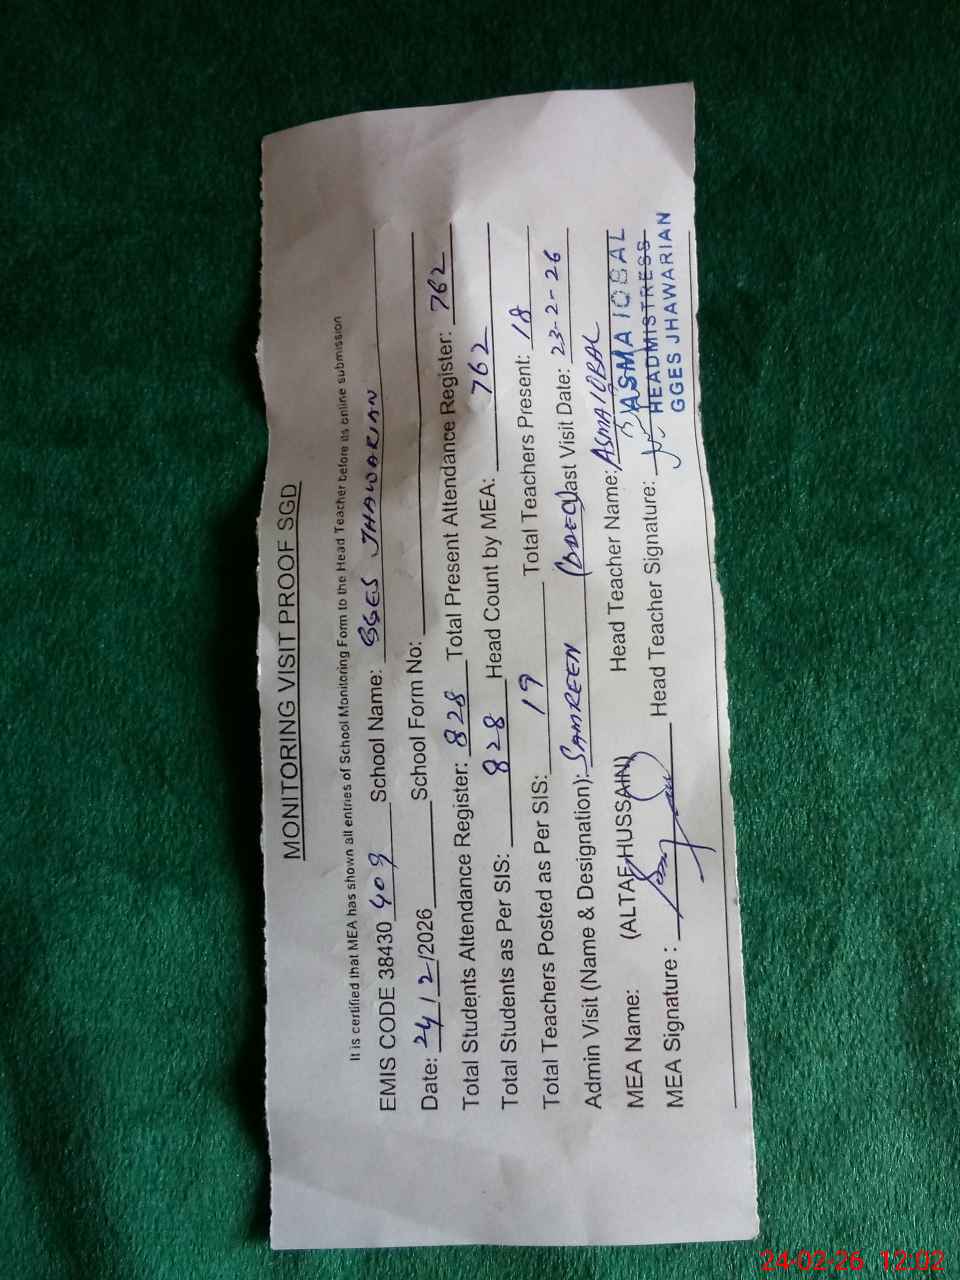 MONITORING VISIT PROOF SGD
It is certified that MEA has shown all entries of School Monitoring Form to the Head Teacher before its online submission
EMIS CODE 38430 409 School Name: GGES JHAWARIAN
Date: 24/2/2026 School Form No:
Total Students Attendance Register: 828 Total Present Attendance Register: 762
Total Students as Per SIS: 828 Head Count by MEA: 762
Total Teachers Posted as Per SIS: 19 Total Teachers Present: 18
Admin Visit (Name & Designation): SAMREEN (DDEO) Last Visit Date: 23-2-26
MEA Name: (ALTAF HUSSAIN) Head Teacher Name: ASMA IQBAL
MEA Signature : Head Teacher Signature:
ASMA IQBAL
HEADMISTRESS
GGES JHAWARIAN
24-02-26 12:02